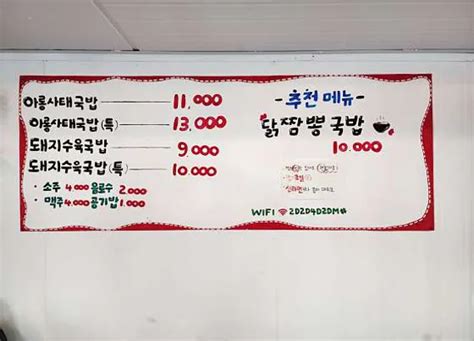 아롱사태국밥 11,000
아롱사태국밥(특) 13,000
돼지수육국밥 9,000
돼지수육국밥(특) 10,000
• 소주 4,000 음료수 2,000
• 맥주 4,000 공기밥 1,000
-추천 메뉴-
닭짬뽕국밥
10,000
WIFI 2D2D4D2DM#